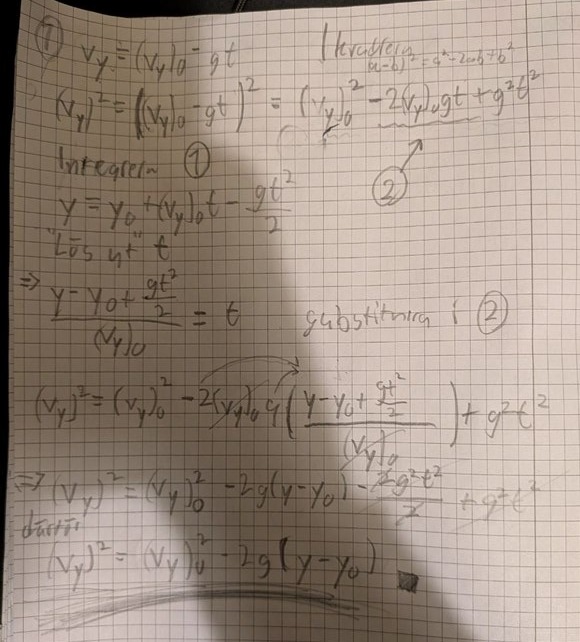 ① v_y = (v_y)_0 - gt
(kvadrera (a-b)² = a² - 2ab + b²
(v_y)² = ((v_y)_0 - gt)² = (v_y)_0² - 2(v_y)_0 gt + g²t²
Integrera ①
②
y = y_0 + (v_y)_0 t - gt²/2
"Lös ut" t
⇒ (y - y_0 + gt²/2)/(v_y)_0 = t substituera i ②
(v_y)² = (v_y)_0² - 2(v_y)_0 g ((y - y_0 + gt²/2)/(v_y)_0) + g²t²
⇒ (v_y)² = (v_y)_0² - 2g(y - y_0) - 2g²t²/2 + g²t²
därför
(v_y)² = (v_y)_0² - 2g(y - y_0) ■